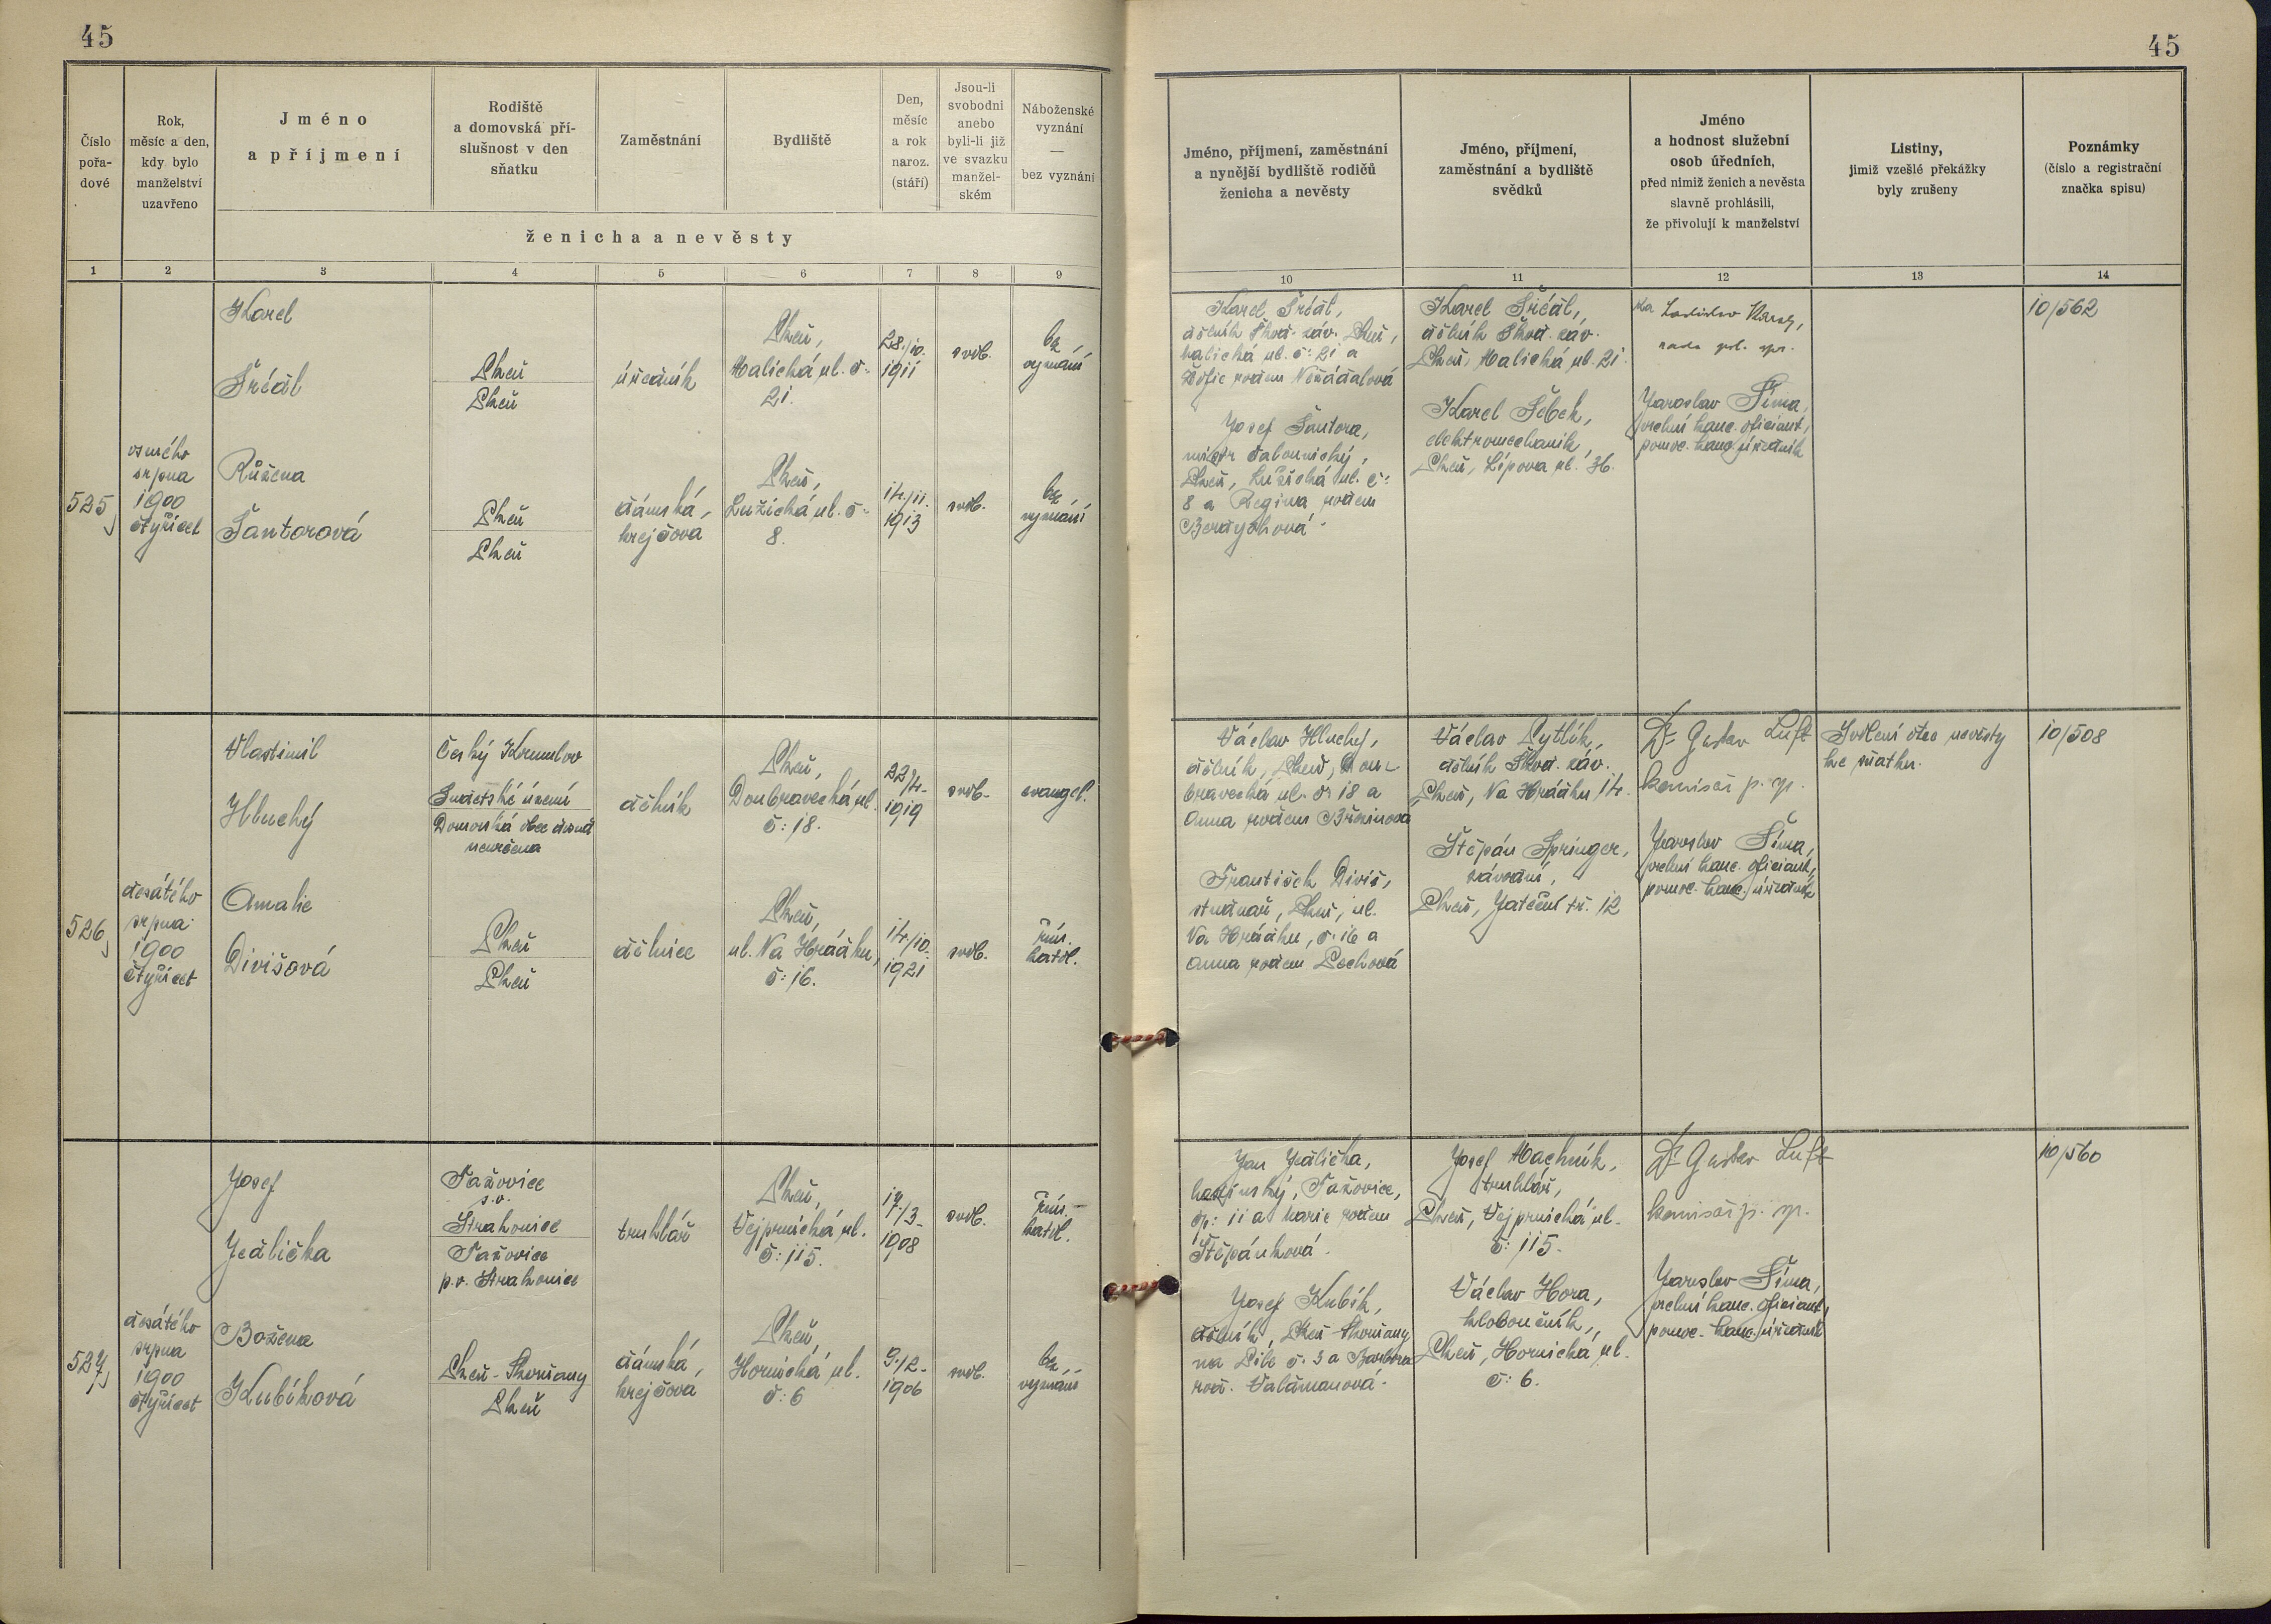 45
45
Číslo
pořa-
dové
Rok,
měsíc a den,
kdy bylo
manželství
uzavřeno
Jméno
a příjmení
Rodiště
a domovská pří-
slušnost v den
sňatku
Zaměstnání
Bydliště
Den,
měsíc
a rok
naroz.
(stáří)
Jsou-li
svobodni
anebo
byli-li již
ve svazku
manžel-
ském
Náboženské
vyznání
—
bez vyznání
ženicha a nevěsty
Jméno, příjmení, zaměstnání
a nynější bydliště rodičů
ženicha a nevěsty
Jméno, příjmení,
zaměstnání a bydliště
svědků
Jméno
a hodnost služební
osob úředních,
před nimiž ženich a nevěsta
slavně prohlásili,
že přivolují k manželství
Listiny,
jimiž vzešlé překážky
byly zrušeny
Poznámky
(číslo a registrační
značka spisu)
1 2 3 4 5 6 7 8 9
10 11 12 13 14
525
osmého
srpna
1900
čtyřicet
Karel
Plzeň
Plzeň
úředník
Plzeň,
Malická ul. č.
21.
28./10.
1911
svob.
bez
vyznání
Růžena
Šantorová
Plzeň
Plzeň
dámská
krejčová
Plzeň,
Lužická ul. č.
8.
14./11.
1913
svob.
bez
vyznání
Karel
dělník Škod. záv. Plzeň,
Malická ul. č. 21 a
Žofie rodem
Josef Šantora,
mistr
Plzeň, Lužická ul. č.
8 a Regina rodem
Karel
dělník Škod. záv.
Plzeň, Malická ul. 21.
Karel Šebek,
elektromechanik,
Plzeň, Lípová ul. 36.
za Ladislav
rada pol. spr.
Jaroslav Šíma,
vrchní kanc. oficiant,
pomoc. kanc. úředník
10/562
526
desátého
srpna
1900
čtyřicet
Vlastimil
Hluchý
Český Krumlov
Sudetské území
Domovská obec dosud
neurčena
dělník
Plzeň,
Doubravecká ul.
č. 18.
22/4.
1919
svob.
evangel.
Amalie
Divišová
Plzeň
Plzeň
dělnice
Plzeň,
ul. Na Hrádku,
č. 16.
14/10.
1921
svob.
řím.
katol.
Václav Hluchý,
dělník, Plzeň, Dou-
bravecká ul. č. 18 a
Anna rodem Březinová
František Diviš,
studnař, Plzeň, ul.
Na Hrádku, č. 16 a
Anna rodem Pechová
Václav Pytlík,
dělník Škod. záv.
Plzeň, Na Hrádku 14.
Štěpán Springer,
Plzeň, Jateční tř. 12
Dr Gustav Luft
komisař p. sp.
Jaroslav Šíma,
vrchní kanc. oficiant,
pomoc. kanc. úředník
Svolení otce nevěsty
ke sňatku.
10/508
527
desátého
srpna
1900
čtyřicet
Josef
Jedlička
Tažovice
s.o.
Strakonice
Tažovice
p.o. Strakonice
truhlář
Plzeň,
Vejprnická ul.
č. 115.
17./3.
1908
svob.
řím.
katol.
Božena
Kubíková
Plzeň-Skvrňany
Plzeň
dámská
krejčová
Plzeň,
Hornická ul.
č. 6
9./2.
1906
svob.
bez
vyznání
Jan Jedlička,
Tažovice,
čp. 11 a Marie rodem
Štěpánková.
Josef Kubík,
dělník, Plzeň-Skvrňany
č. 3 a Barbora
rod.
Josef Machník,
truhlář,
Plzeň, Vejprnická ul.
č. 115.
Václav Hora,
kloboučník,
Plzeň, Hornická ul.
č. 6.
Dr Gustav Luft
komisař p. sp.
Jaroslav Šíma,
vrchní kanc. oficiant,
pomoc. kanc. úředník
10/560